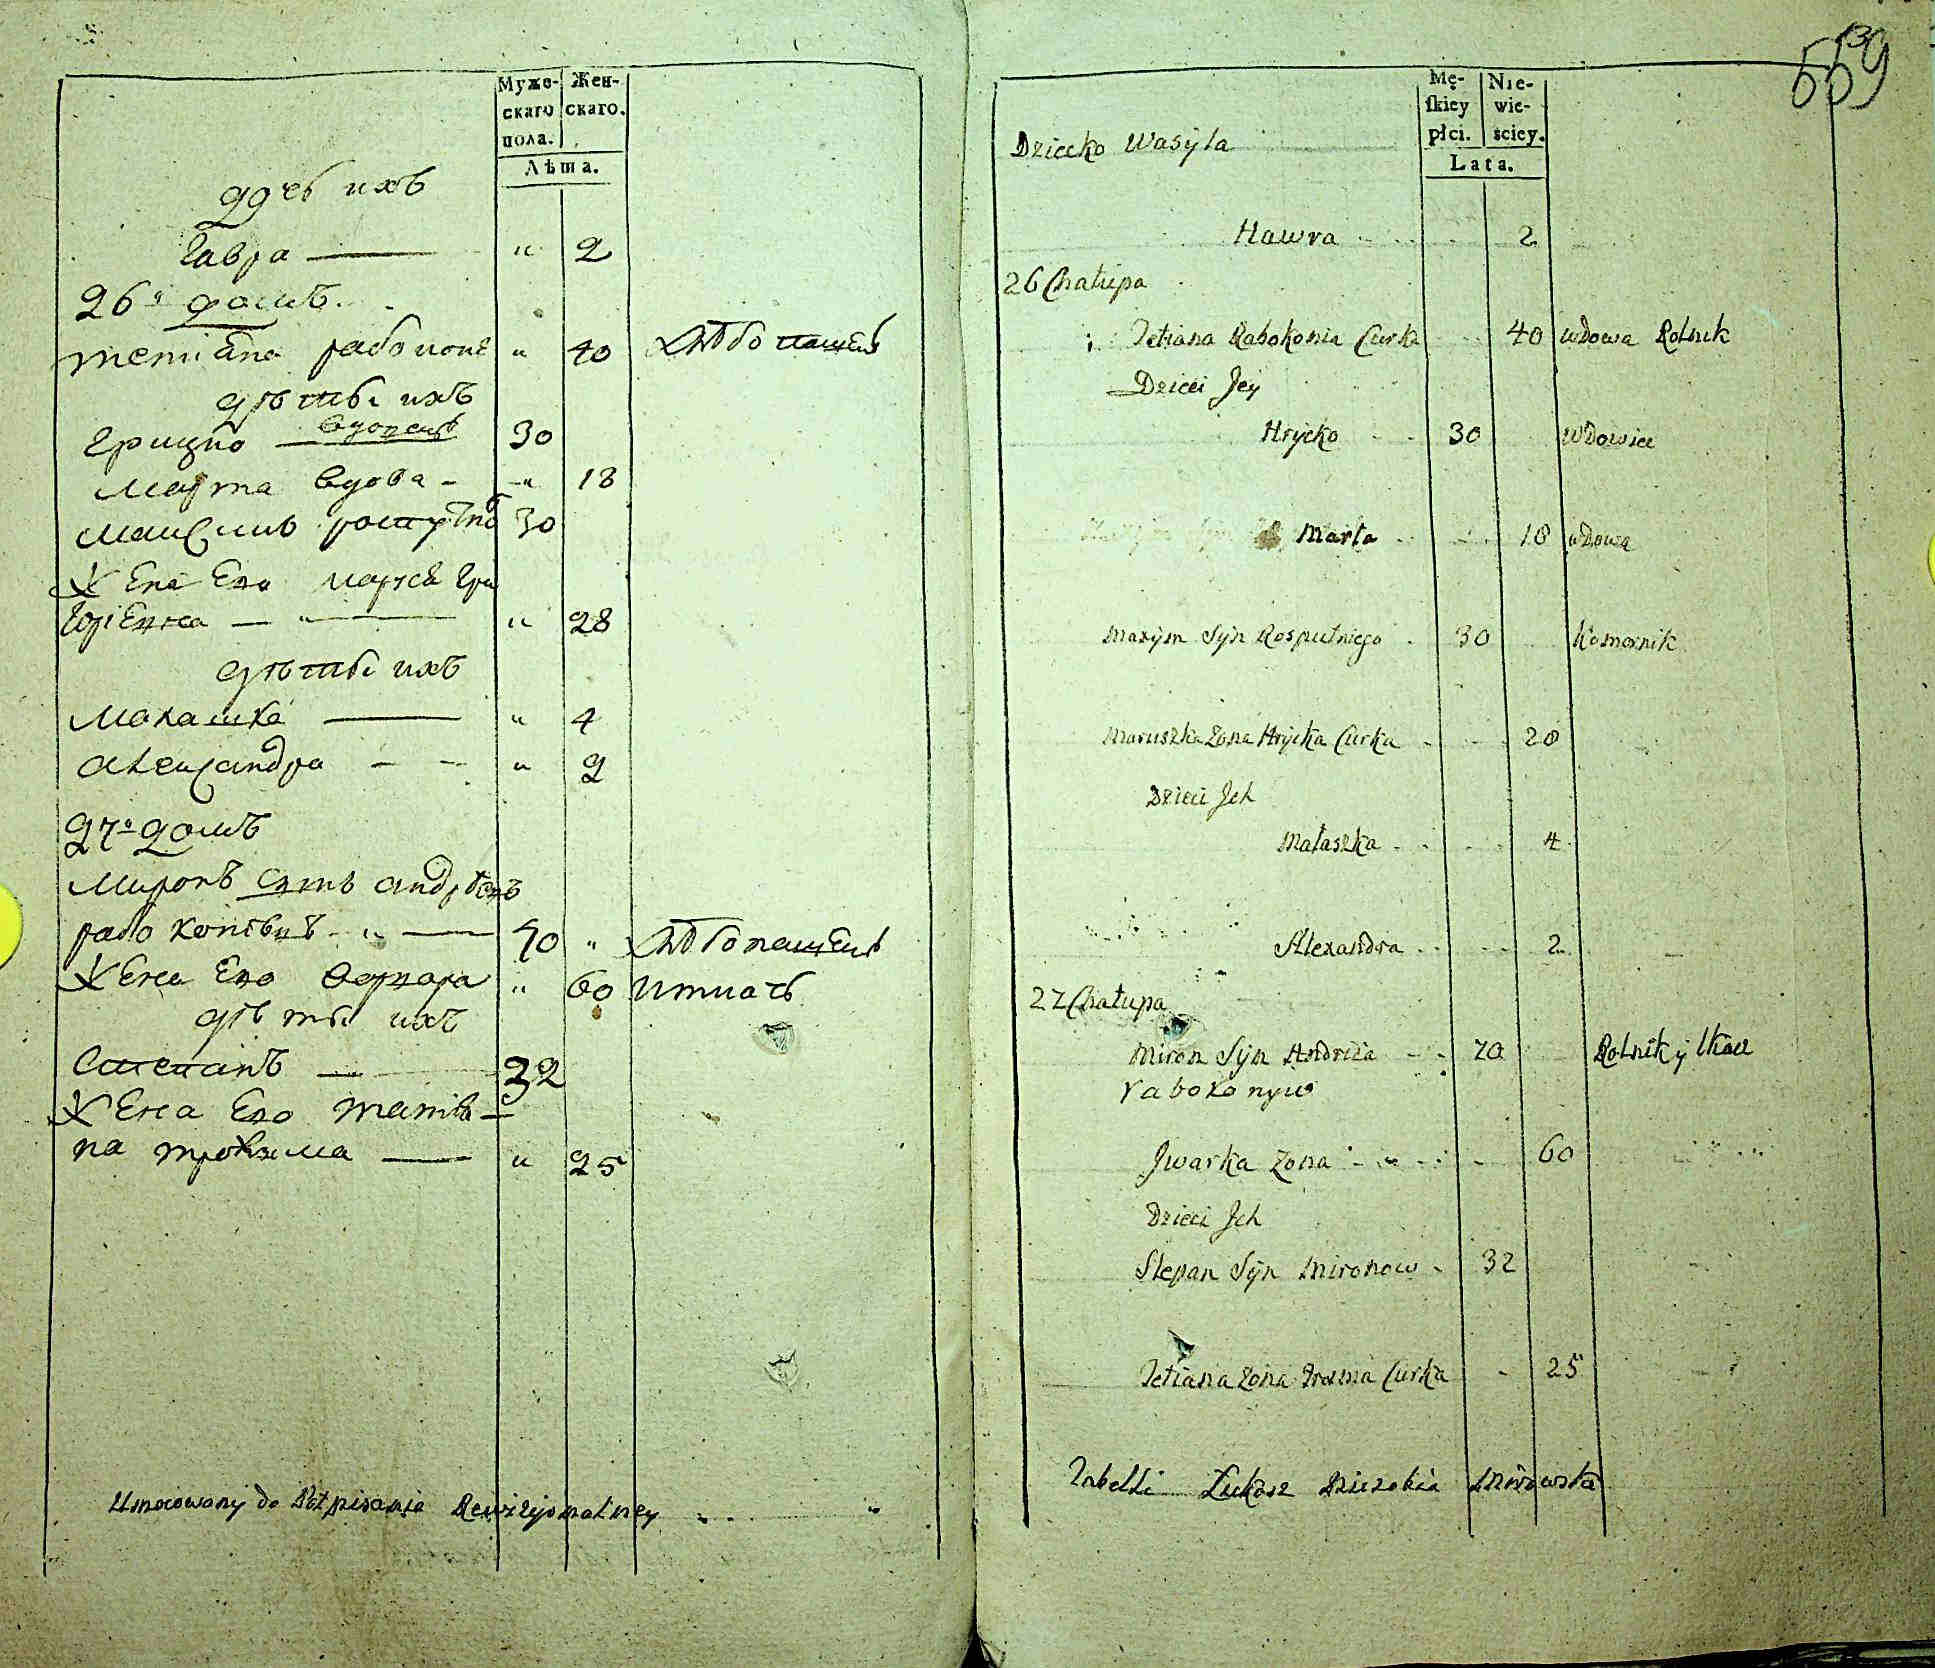 Муже-
скаго
пола.
Жен-
скаго.
Лѣта.
ихъ
Гавра — " 2
26й домъ.
тетіана рабоконе " 40 хлѣбопашецъ
дѣтѣ ихъ
Грицко вдовецъ 30
Марта вдова - " 18
Максимъ роспутнѣ 30
Жена Его Мар
" 28
дѣтѣ ихъ
Малашка — " 4
Александра — " 2
27й домъ
Миронъ сынъ андрѣевъ
рабоконевъ " — 70 " хлѣбопашецъ
Жена Его " 60 и ткачъ
дѣтѣ ихъ
Степанъ — 32
Жена Его татіа-
на трохима — " 25
Umocowany do Potpisania Rewizyjonalney
559
Mę-
skiey
płci.
Nie-
wie-
sciey.
Lata.
Dziecko Wasyla
Hawra 2
26 Chałupa
Tetiana Rabokonia Curka 40 wdowa Rolnik
Dzieci Jey
Hrycko 30 Wdowiec
Marta 18 wdowa
Maxym Syn Rosputniego 30 Komornik
Maruszka Zona Hrycka Curka 28
Dzieci Jch
Małaszka 4
Alexandra 2
27 Chałupa
Miron Syn Andreia 70 Rolnik y tkacz
rabokonyw
Jwarka Zona 60
Dzieci Jch
Stepan Syn Mironow 32
Tetiana Zona Curka 25
Tabelli Łukasz